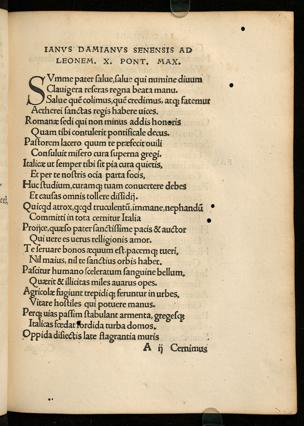 IANVS DAMIANVS SENENSIS AD
LEONEM. X. PONT. MAX.
SVmme pater salue, salue qui numine diuum
Clauigera reseras regna beata manu.
Salue quē colimus, quē credimus, atq; fatemur
Aetherei sanctas regis habere uices.
Romanæ sedi qui non minus addis honoris
Quam tibi contulerit pontificale decus.
Pastorem lacero quum te præfecit ouili
Consuluit misero cura superna gregi.
Italicæ ut semper tibi sit pia cura quietis,
Et per te nostris ocia parta focis,
Huc studium, curamq; tuam conuertere debes
Et causas omnis tollere dissidii.
Quicqd atrox, qcqd truculentū, immane, nephandū
Committi in tota cernitur Italia
Proiice, quæso pater sanctissime pacis & auctor
Qui uere es uerus relligionis amor.
Te seruare bonos æquum est, pacemq; tueri,
Nil maius, nil te sanctius orbis habet.
Pascitur humano sceleratum sanguine bellum,
Quærit & illicitas miles auarus opes.
Agricolæ fugiunt trepidiq; feruntur in urbes,
Vitare hostiles qui potuere manus.
Perq; uias passim stabulant armenta, gregesq;
Italicas fœdat sordida turba domos.
Oppida disiectis late flagrantia muris
A ij Cernimus